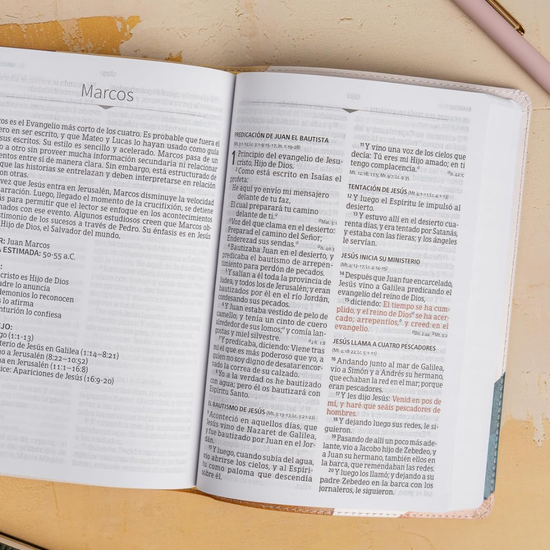 Marcos
os es el Evangelio más corto de los cuatro. Es probable que fuera el
ero en ser escrito, y que Mateo y Lucas lo hayan usado como guía
sus escritos. Su estilo es sencillo y acelerado. Marcos pasa de un
o a otro sin proveer mucha información secundaria ni relacionar
entos entre sí de manera clara. Sin embargo, está estructurado de
que las historias se entrelazan y deben interpretarse en relación
on otras.
vez que Jesús entra en Jerusalén, Marcos disminuye la velocidad
arración. Luego, llegado el momento de la crucifixión, se detiene
ás para permitir que el lector se enfoque en los acontecimientos
nados con ese evento. Algunos estudiosos creen que Marcos ob-
stimonio de los sucesos a través de Pedro. Su énfasis en es Jesús
Hijo de Dios, el Salvador del mundo.
R: Juan Marcos
A ESTIMADA: 50-55 a.C.
:
cristo es Hijo de Dios
adre lo anuncia
emonios lo reconocen
s lo afirma
nturión lo confiesa
EJO:
go (1:1-13)
terio de Jesús en Galilea (1:14–8:21)
o a Jerusalén (8:22–10:52)
a en Jerusalén (11:1–16:8)
ice: Apariciones de Jesús (16:9-20)
PREDICACIÓN DE JUAN EL BAUTISTA
1 Principio del evangelio de Jesu-
cristo, Hijo de Dios.
2 Como está escrito en Isaías el
profeta:
He aquí yo envío mi mensajero
delante de tu faz,
El cual preparará tu camino
delante de ti.
3 Voz del que clama en el desierto:
Preparad el camino del Señor;
Enderezad sus sendas.
4 Bautizaba Juan en el desierto, y
predicaba el bautismo de arrepen-
timiento para perdón de pecados.
5 Y salían a él toda la provincia de
Judea, y todos los de Jerusalén; y eran
bautizados por él en el río Jordán,
confesando sus pecados.
6 Y Juan estaba vestido de pelo de
camello, y tenía un cinto de cuero
alrededor de sus lomos, y comía lan-
gostas y miel silvestre.
7 Y predicaba, diciendo: Viene tras
mí el que es más poderoso que yo, a
quien no soy digno de desatar encor-
vado la correa de su calzado.
8 Yo a la verdad os he bautizado
con agua; pero él os bautizará con
Espíritu Santo.
EL BAUTISMO DE JESÚS
9 Aconteció en aquellos días, que
Jesús vino de Nazaret de Galilea,
y fue bautizado por Juan en el Jor-
dán.
10 Y luego, cuando subía del agua,
vio abrirse los cielos, y al Espíri-
tu como paloma que descendía
sobre él.
11 Y vino una voz de los cielos que
decía: Tú eres mi Hijo amado; en ti
tengo complacencia.
TENTACIÓN DE JESÚS
12 Y luego el Espíritu le impulsó al
desierto.
13 Y estuvo allí en el desierto cua-
renta días, y era tentado por Satanás,
y estaba con las fieras; y los ángeles
le servían.
JESÚS INICIA SU MINISTERIO
14 Después que Juan fue encarcelado,
Jesús vino a Galilea predicando el
evangelio del reino de Dios,
15 diciendo: El tiempo se ha cum-
plido, y el reino de Dios se ha acer-
cado; arrepentíos, y creed en el
evangelio.
JESÚS LLAMA A CUATRO PESCADORES
16 Andando junto al mar de Galilea,
vio a Simón y a Andrés su hermano,
que echaban la red en el mar; porque
eran pescadores.
17 Y les dijo Jesús: Venid en pos de
mí, y haré que seáis pescadores de
hombres.
18 Y dejando luego sus redes, le si-
guieron.
19 Pasando de allí un poco más ade-
lante, vio a Jacobo hijo de Zebedeo, y
a Juan su hermano, también ellos en
la barca, que remendaban las redes.
20 Y luego los llamó; y dejando a su
padre Zebedeo en la barca con los
jornaleros, le siguieron.